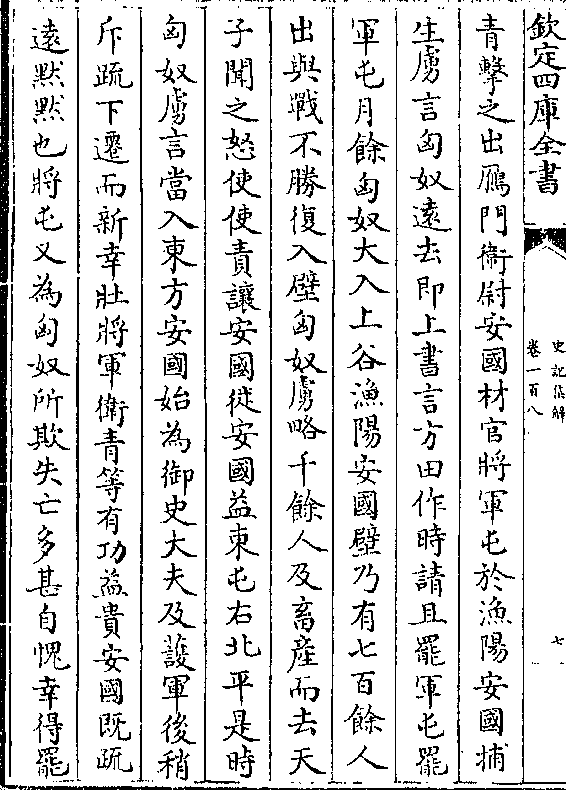 欽定四庫全書
史記集解
卷一百八
七
青擊之出鴈門衞尉安國材官將軍屯於漁陽安國捕
生虜言匈奴遠去即上書言方田作時請且罷軍屯罷
軍屯月餘匈奴大入上谷漁陽安國壁乃有七百餘人
出與戰不勝復入壁匈奴虜略千餘人及畜產而去天
子聞之怒使使責讓安國徙安國益東屯右北平是時
匈奴虜言當入東方安國始為御史大夫及護軍後稍
斥疏下遷而新幸壯將軍衛青等有功益貴安國既疏
遠黙黙也將屯又為匈奴所欺失亡多甚自愧幸得罷